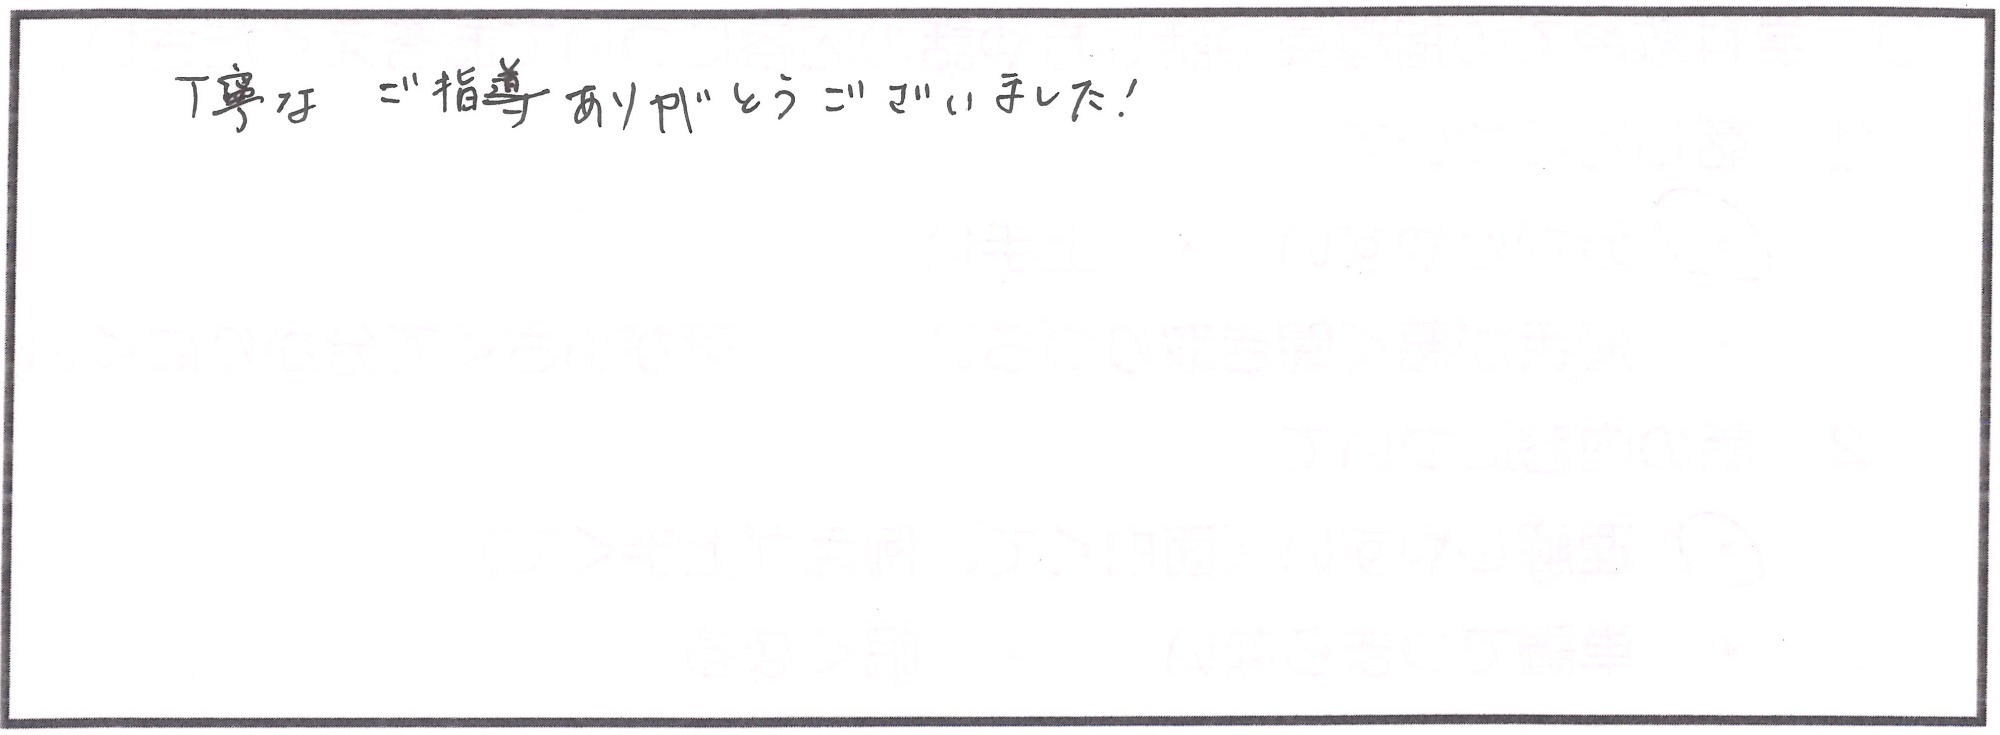 丁寧な ご指導ありがとうございました!